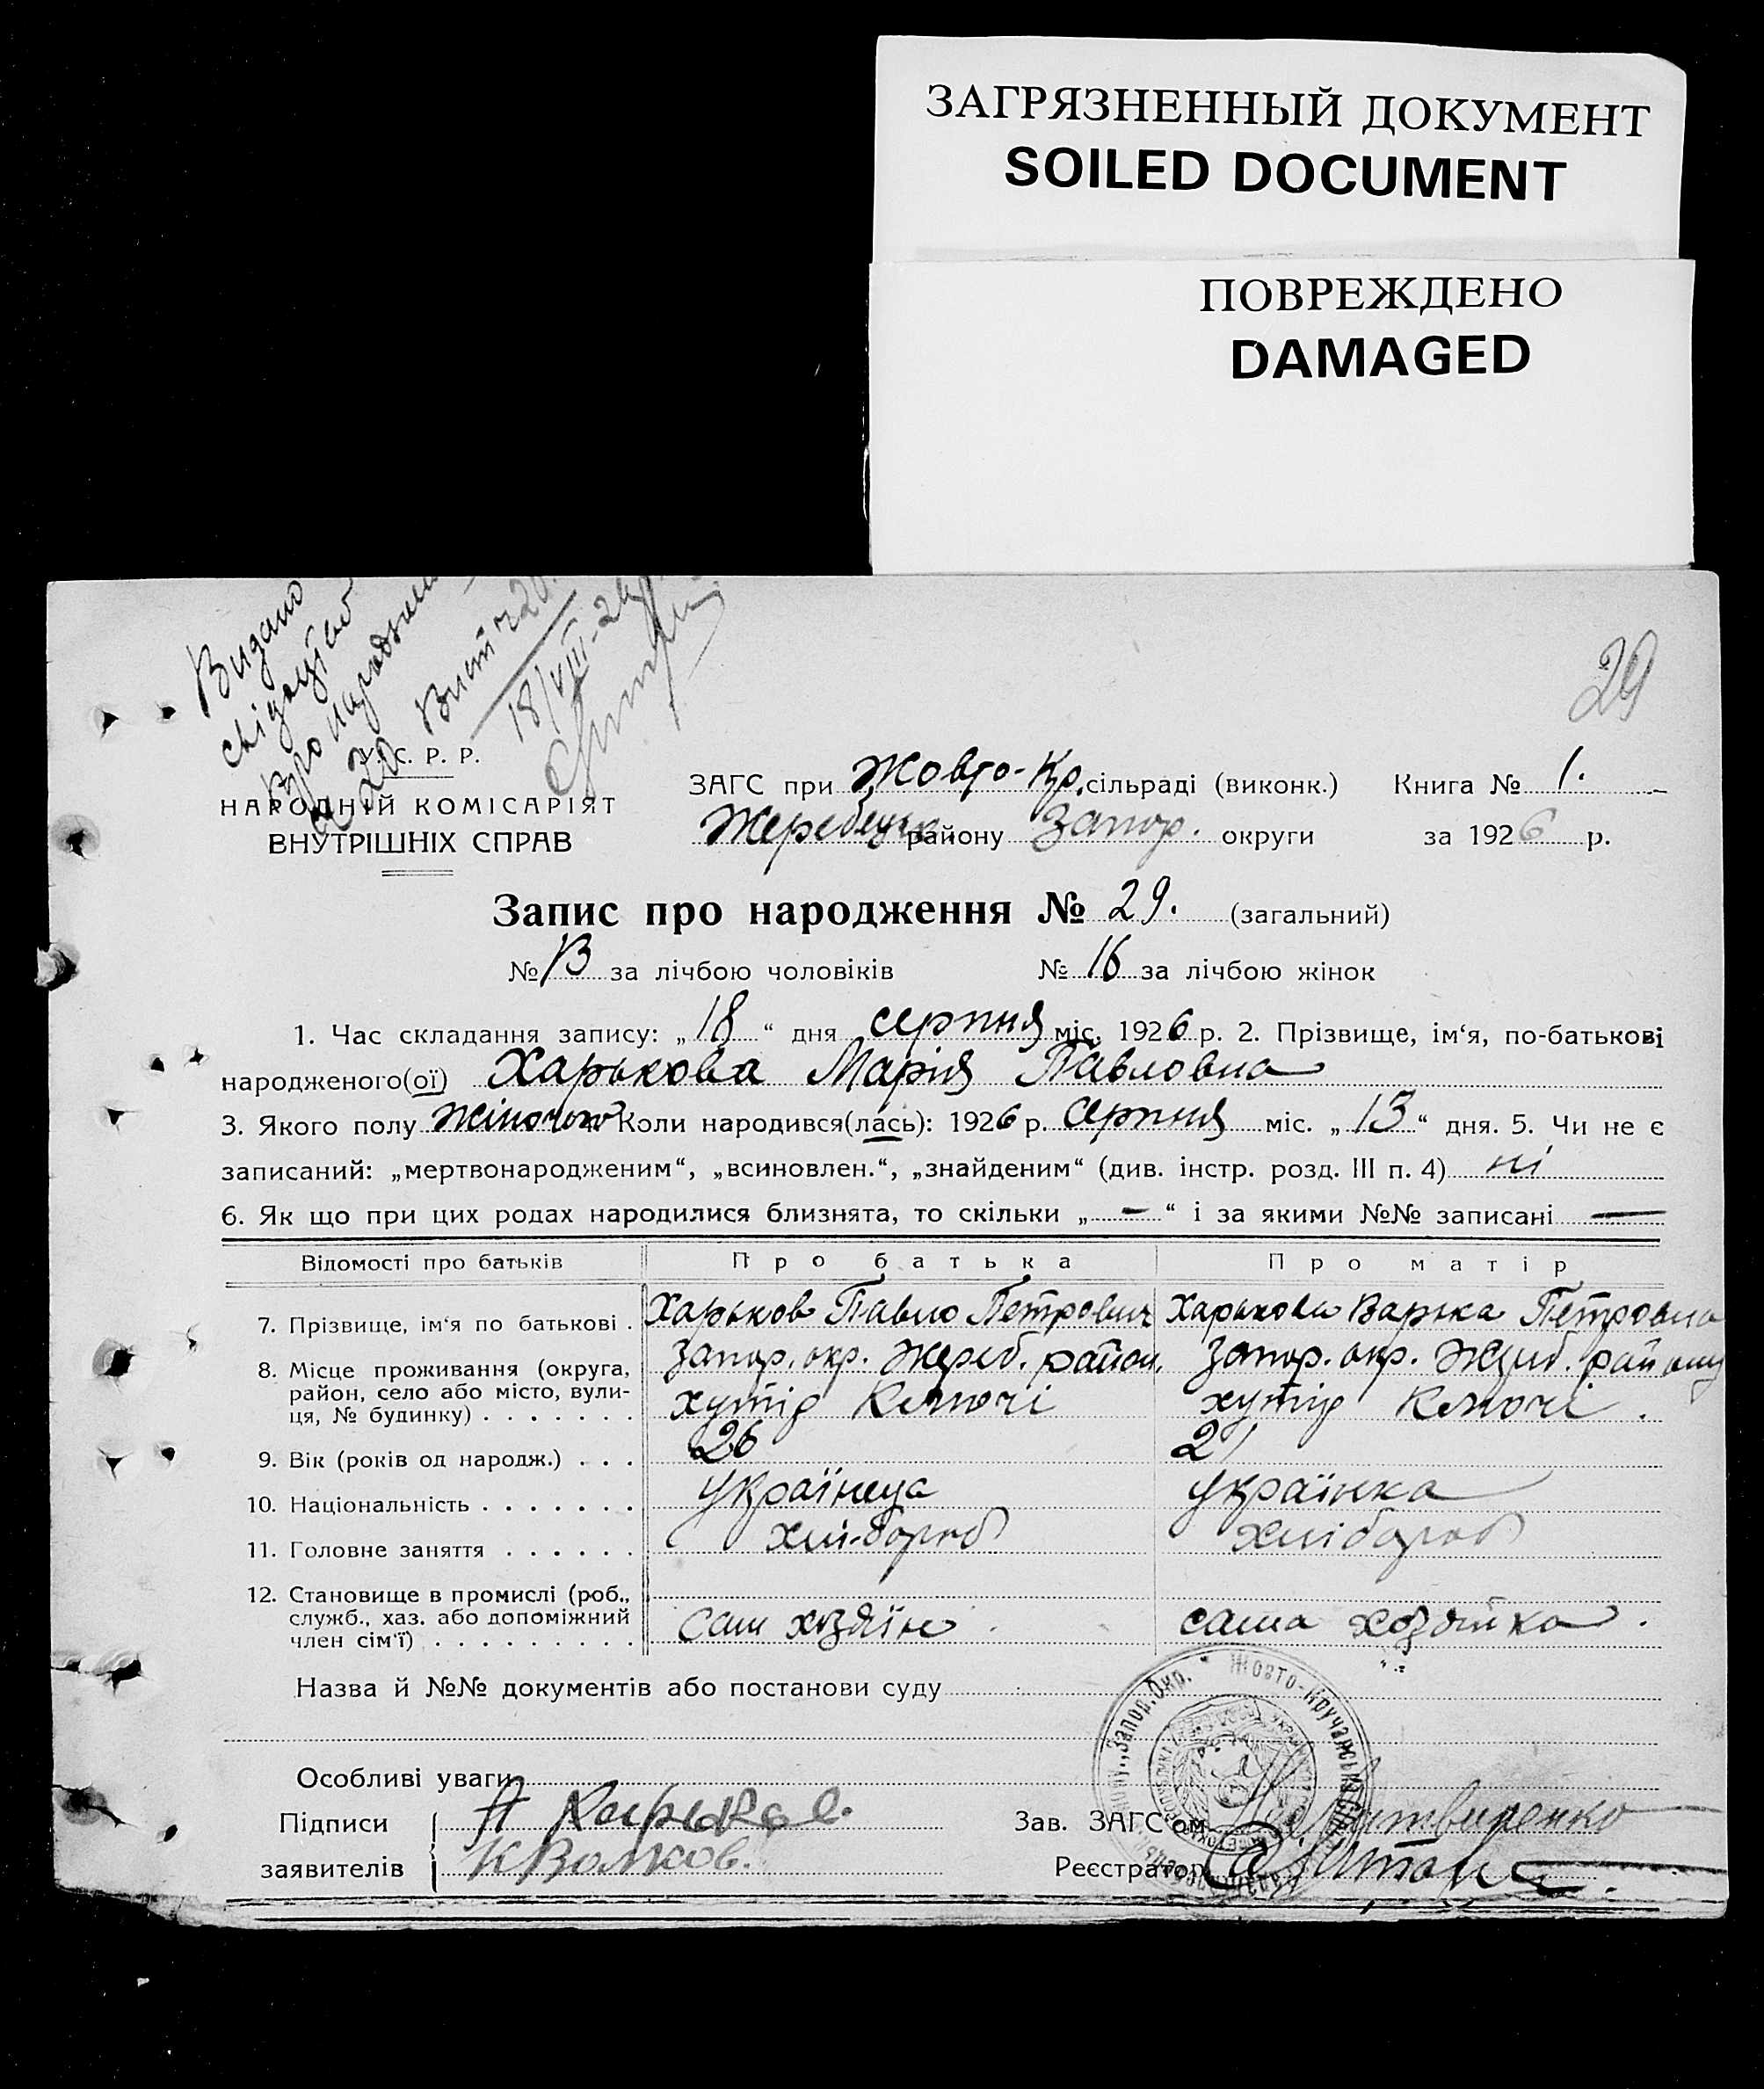 ЗАГРЯЗНЕННЫЙ ДОКУМЕНТ
SOILED DOCUMENT
ПОВРЕЖДЕНО
DAMAGED
Видано
про народження
18/VIII-26
29
У. С. Р. Р.
НАРОДНІЙ КОМІСАРІЯТ
ВНУТРІШНІХ СПРАВ
ЗАГС при Жовто-Кр. сільраді (виконк.) Книга № 1.
Жеребецьк. району Запор. округи за 1926 р.
Запис про народження № 29. (загальний)
№ 13 за лічбою чоловіків № 16 за лічбою жінок
1. Час складання запису: „18“ дня серпня міс. 1926 р. 2. Прізвище, ім‘я, по-батькові
народженого(ої) Харькова Марія Павловна
3. Якого полу жіночого Коли народився(лась): 1926 р. серпня міс. „13“ дня. 5. Чи не є
записаний: „мертвонародженим“, „всиновлен.“, „знайденим“ (див. інстр. розд. III п. 4) ні
6. Як що при цих родах народилися близнята, то скільки „—“ і за якими №№ записані —
Відомості про батьків Про батька Про матір
7. Прізвище, ім‘я по батькові . Харьков Павло Петрович Харькова Варька Петровна
8. Місце проживання (округа, Запор. окр. Жереб. район, Запор. окр. Жереб. району
район, село або місто, вули-
ця, № будинку) . . . . . . . хутір Ключі хутір Ключі .
9. Вік (років од народж.) . . . 26 21
10. Національність . . . . . . . українець українка
11. Головне заняття . . . . . . хлібороб хлібороб
12. Становище в промислі (роб.,
служб., хаз. або допоміжний
член сім‘ї) . . . . . . . . . сам хозяїн . сама хозяйка .
Назва й №№ документів або постанови суду
Особливі уваги
Підписи Харьков Зав. ЗАГС‘ом Литвиненко
заявителів К Волков. Реєстратор
Запор. Окр. * Жовто-Кручанська